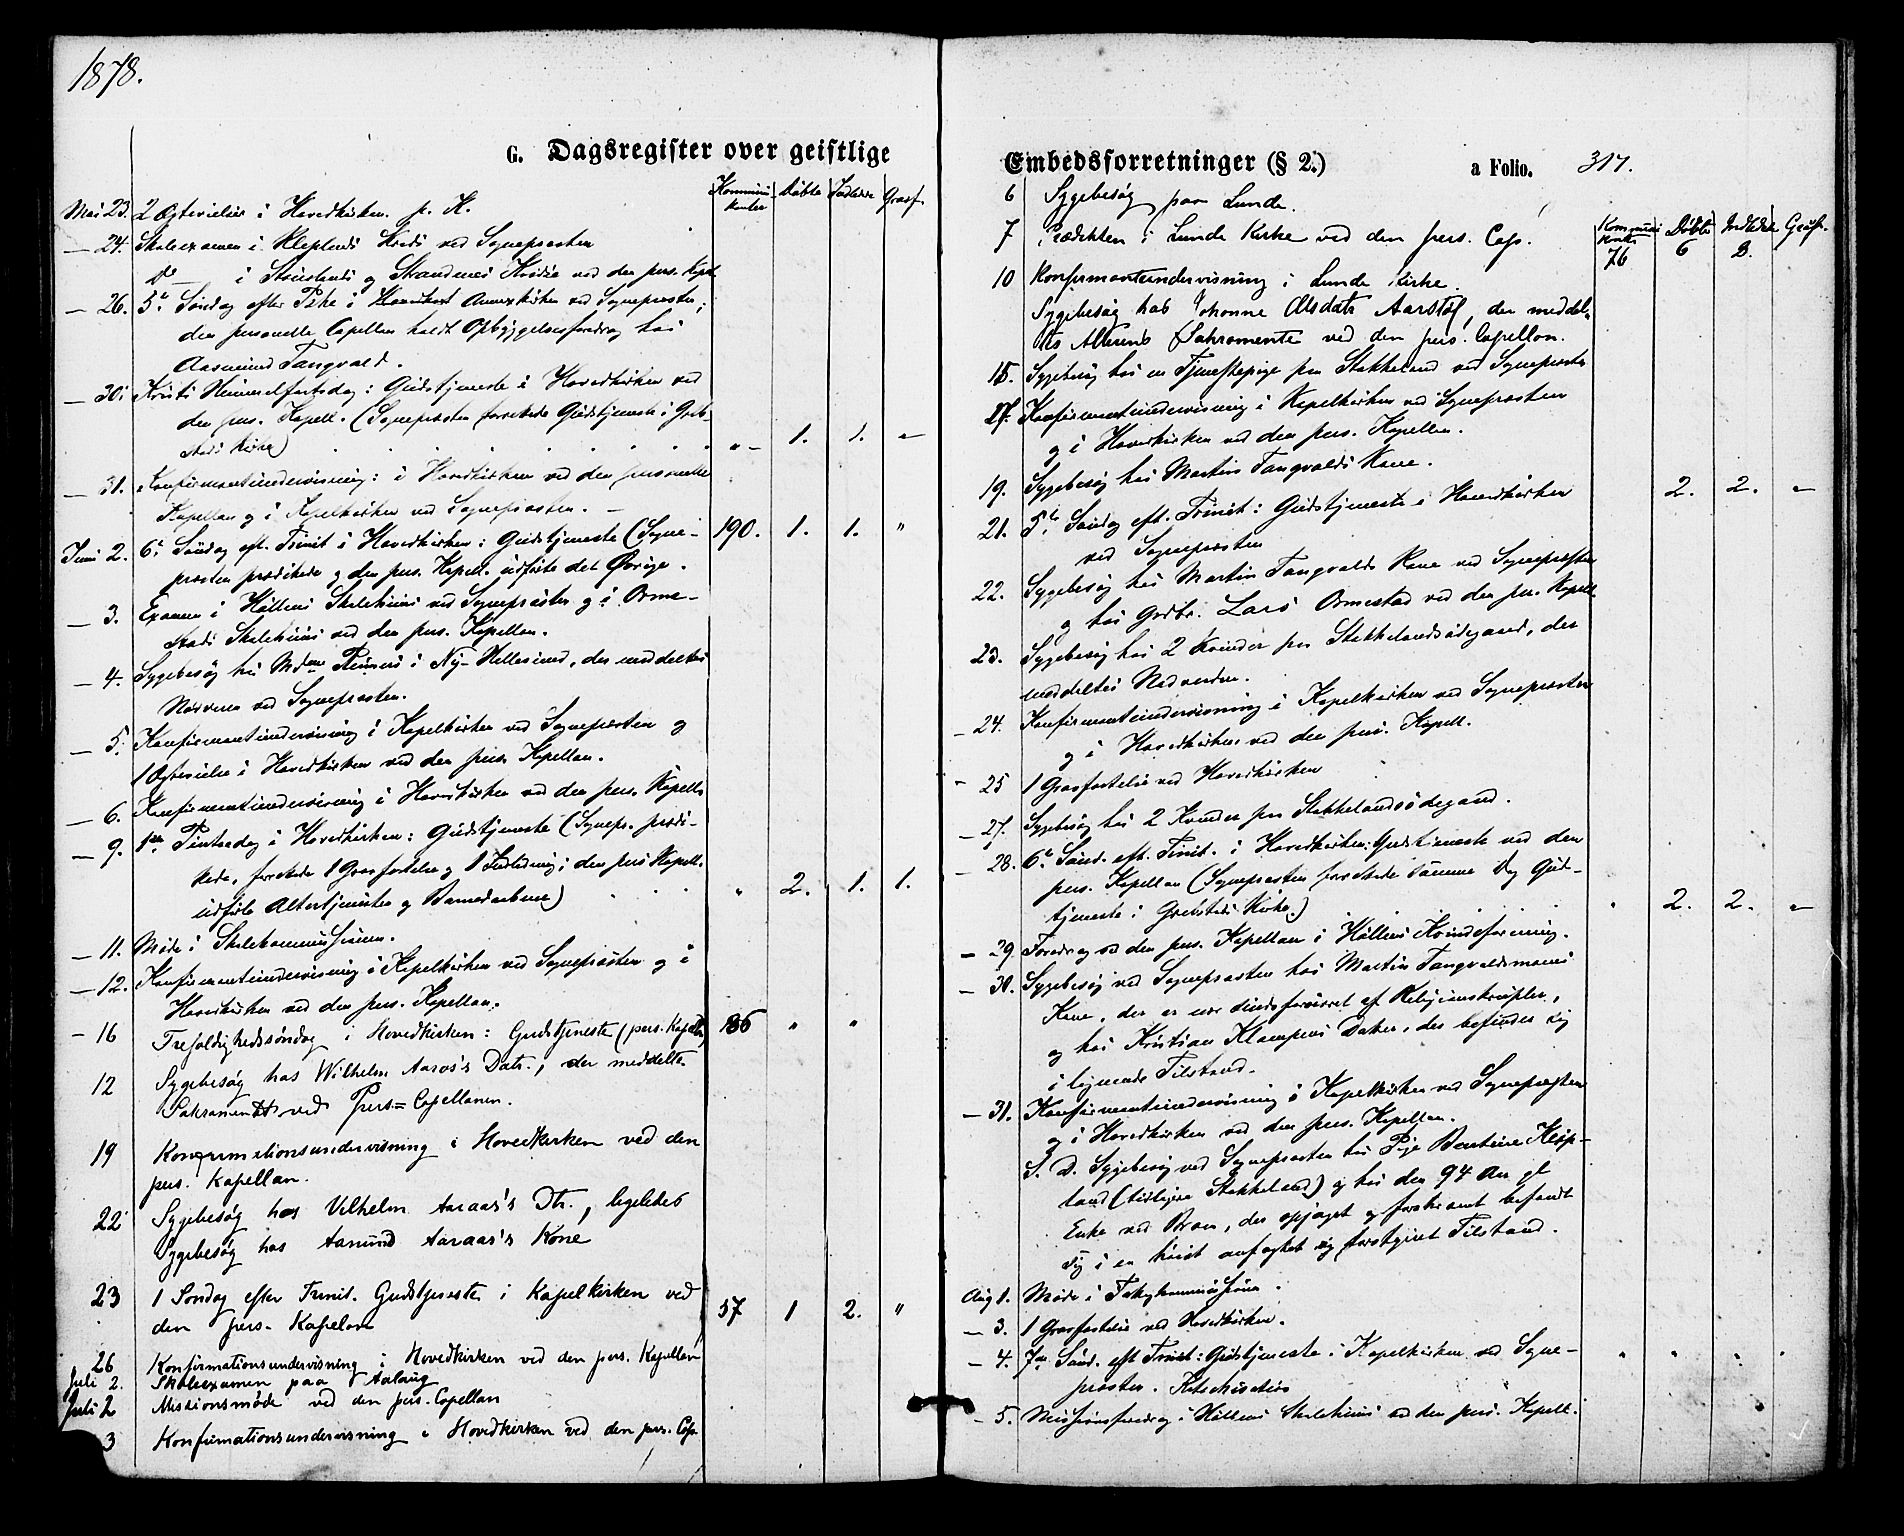 1878.
G. Dagsregister over geistlige
Kommuni- kanter Døbte Indledte Grasf.
Mai 23. 2 Ægtevielser i Hovedkirken. p. K.
— 24. Skoleexamen i Kleplands Kreds ved Sognepræsten
Do — i Stuslands og Strandnes Kredse ved den pers. Kapl.
— 26. 5te Søndag efter Paske i Annexkirken ved Sognepræsten;
den personelle Capellan holdt Opbyggelsesforedrag hos
Aasmund Tangvald.
— 30. Kristi Himmelfartsdag: Gudstjeneste i Hovedkirken ved
den pers. Kapell. (Sognepræsten forrettede Gudstjeneste i Greb-
stads Kirke) " — 1. 1. "
— 31. Konfirmantundervisning: i Hovedkirken ved den personelle
Kapellan og i Kapelkirken ved Sognepræsten. —
Juni 2. 6te Søndag eft. Trinit i Hovedkirken: Gudstjeneste (Sogne- 190. 1. 1. "
præsten prædikede og den pers. Kapell. udførte det Øvrige.
— 3. Examen i Høllens Skolehuus ved Sognepræsten og i Orme-
stads Skolehuus ved den pers. Kapellan.
— 4. Sygebesøg hos Mdme i Ny-Hellesund, der meddeltes
Nadveren ved Sognepræsten.
— 5. Konfirmantundervisning i Kapelkirken ved Sognepræsten og
1 Ægtevielse i Hovedkirken ved den pers. Kapellan.
— 6. Konfirmantundervisning i Hovedkirken ved den pers. Kapelln
— 9. 1ste Pintsedag i Hovedkirken: Gudstjeneste (Sognepr. prædi-
kede, forrettede 1 Grasfæstelse og 1 Indledning; den pers Kapell.
udførte Altertjenesten og Barnedaabene) " 2. 1. 1.
— 11. Møde i Skolekommissionen.
— 12. Konfirmantundervisning i Kapelkirken ved Sognepræsten og i
Hovedkirken ved den pers. Kapellan.
— 16 Trefoldighedssøndag i Hovedkirken: Gudstjeneste (pers. Kapelln) 186 " "
12 Sygebesøg hos Wilhelm Aaros's Datr., der meddeltes
Sakramentet ved Pers= Capellanen.
19 Konfirmationsundervisning i Hovedkirken ved den
pers. Kapellan.
22 Sygebesøg hos Vilhelm Aaraas's Dtr., ligeledes
Sygebesøg hos Aanund Aaraas's Kone
23 1 Søndag efter Trinit. Gudstjeneste i Kapelkirken ved 57 1 2. "
den pers. Kapelan
26 Konfirmationsundervisning i Hovedkirken ved den pers. Kapellan
Juli 2. Skoleexamen paa
Juli 2 Missionsmøde ved den pers. Capellan
3 Konfirmationsundervisning i Hovedkirken ved den pers. Cap.
Embedsforretninger (§ 2.) a Folio. 317.
Kommuni kanter Døbte Indledte Grasf.
6 Sygebesøg paa Lunde.
7 Prædiken i Lunde Kirke ved den pers. Cap. 76 6 2.
10 Konfirmantundervisning i Lunde Kirke.
Sygebesøg hos Johonne Olsdatr Aarstøl, der meddel-
tes Alterens Sakramente ved den pers. Capellan.
15. Sygebesøg hos en Tjenestepige paa Stokkeland ved Sognepræsten
17. Konfirmantundervisning i Kapelkirken ved Sognepræsten
og i Hovedkirken ved den pers. Kapellan.
19. Sygebesøg hos Martin Tangvalds Kone.
21. 5te Søndag eft. Trinit: Gudstjeneste i Hovedkirken 2. 2. "
ved Sognepræsten
22. Sygebesøg hos Martin Tangvalds Kone ved Sognepræsten
og hos Grdbr. Lars Ormestad ved den pers. Kapell
23. Sygebesøg hos 2 Kvinder paa Stokkelandsødegaard, der
meddeltes Nadverden.
— 24. Konfirmantundervisning i Kapelkirken ved Sognepræsten
og i Hovedkirken ved den pers. Kapell.
— 25 1 Grasfæstelse ved Hovedkirken
— 27. Sygebesøg hos 2 Kvinder paa Stokkelandsødegaard.
— 28. 6te Sønd. eft. Trinit. i Hovedkirken: Gudstjeneste ved den
pers. Kapellan (Sognepræsten forrettede samme Dag Gud-
tjeneste i Grebstads Kirke.) " 2. 2. "
— 29 Foredrag ved den pers. Kapellan i Høllens Kvindeforening.
— 30. Sygebesøg ved Sognepræsten hos Martin Tangvaldsmoens
Kone, der er sindsforvirret af Religionskrupler,
og hos Kristian Klampens Datter, der befinder sig
i lignende Tilstand.
— 31. Konfirmantundervisning i Kapelkirken ved Sognepræsten
og i Hovedkirken ved den pers. Kapellan.
S. D. Sygebesøg ved Sognepræsten hos Pige Bertine Klep-
land (tidligere Stokkeland) og hos den 94 Aar gl
Enke ved Broen, der opjaget og forskræmt befandt
sig i en høist anfægtet og forstyrret Tilstand.
Aug 1. Møde i
— 3. 1 Grasfæstelse ved Hovedkirken.
— 4. 7de Sønd. eft Trinit: Gudstjeneste i Kapelkirken ved Sogne- " " " "
præsten. Katechisation
— 5. Missionsforedrag i Høllens Skolehuus ved den pers. Kapell.